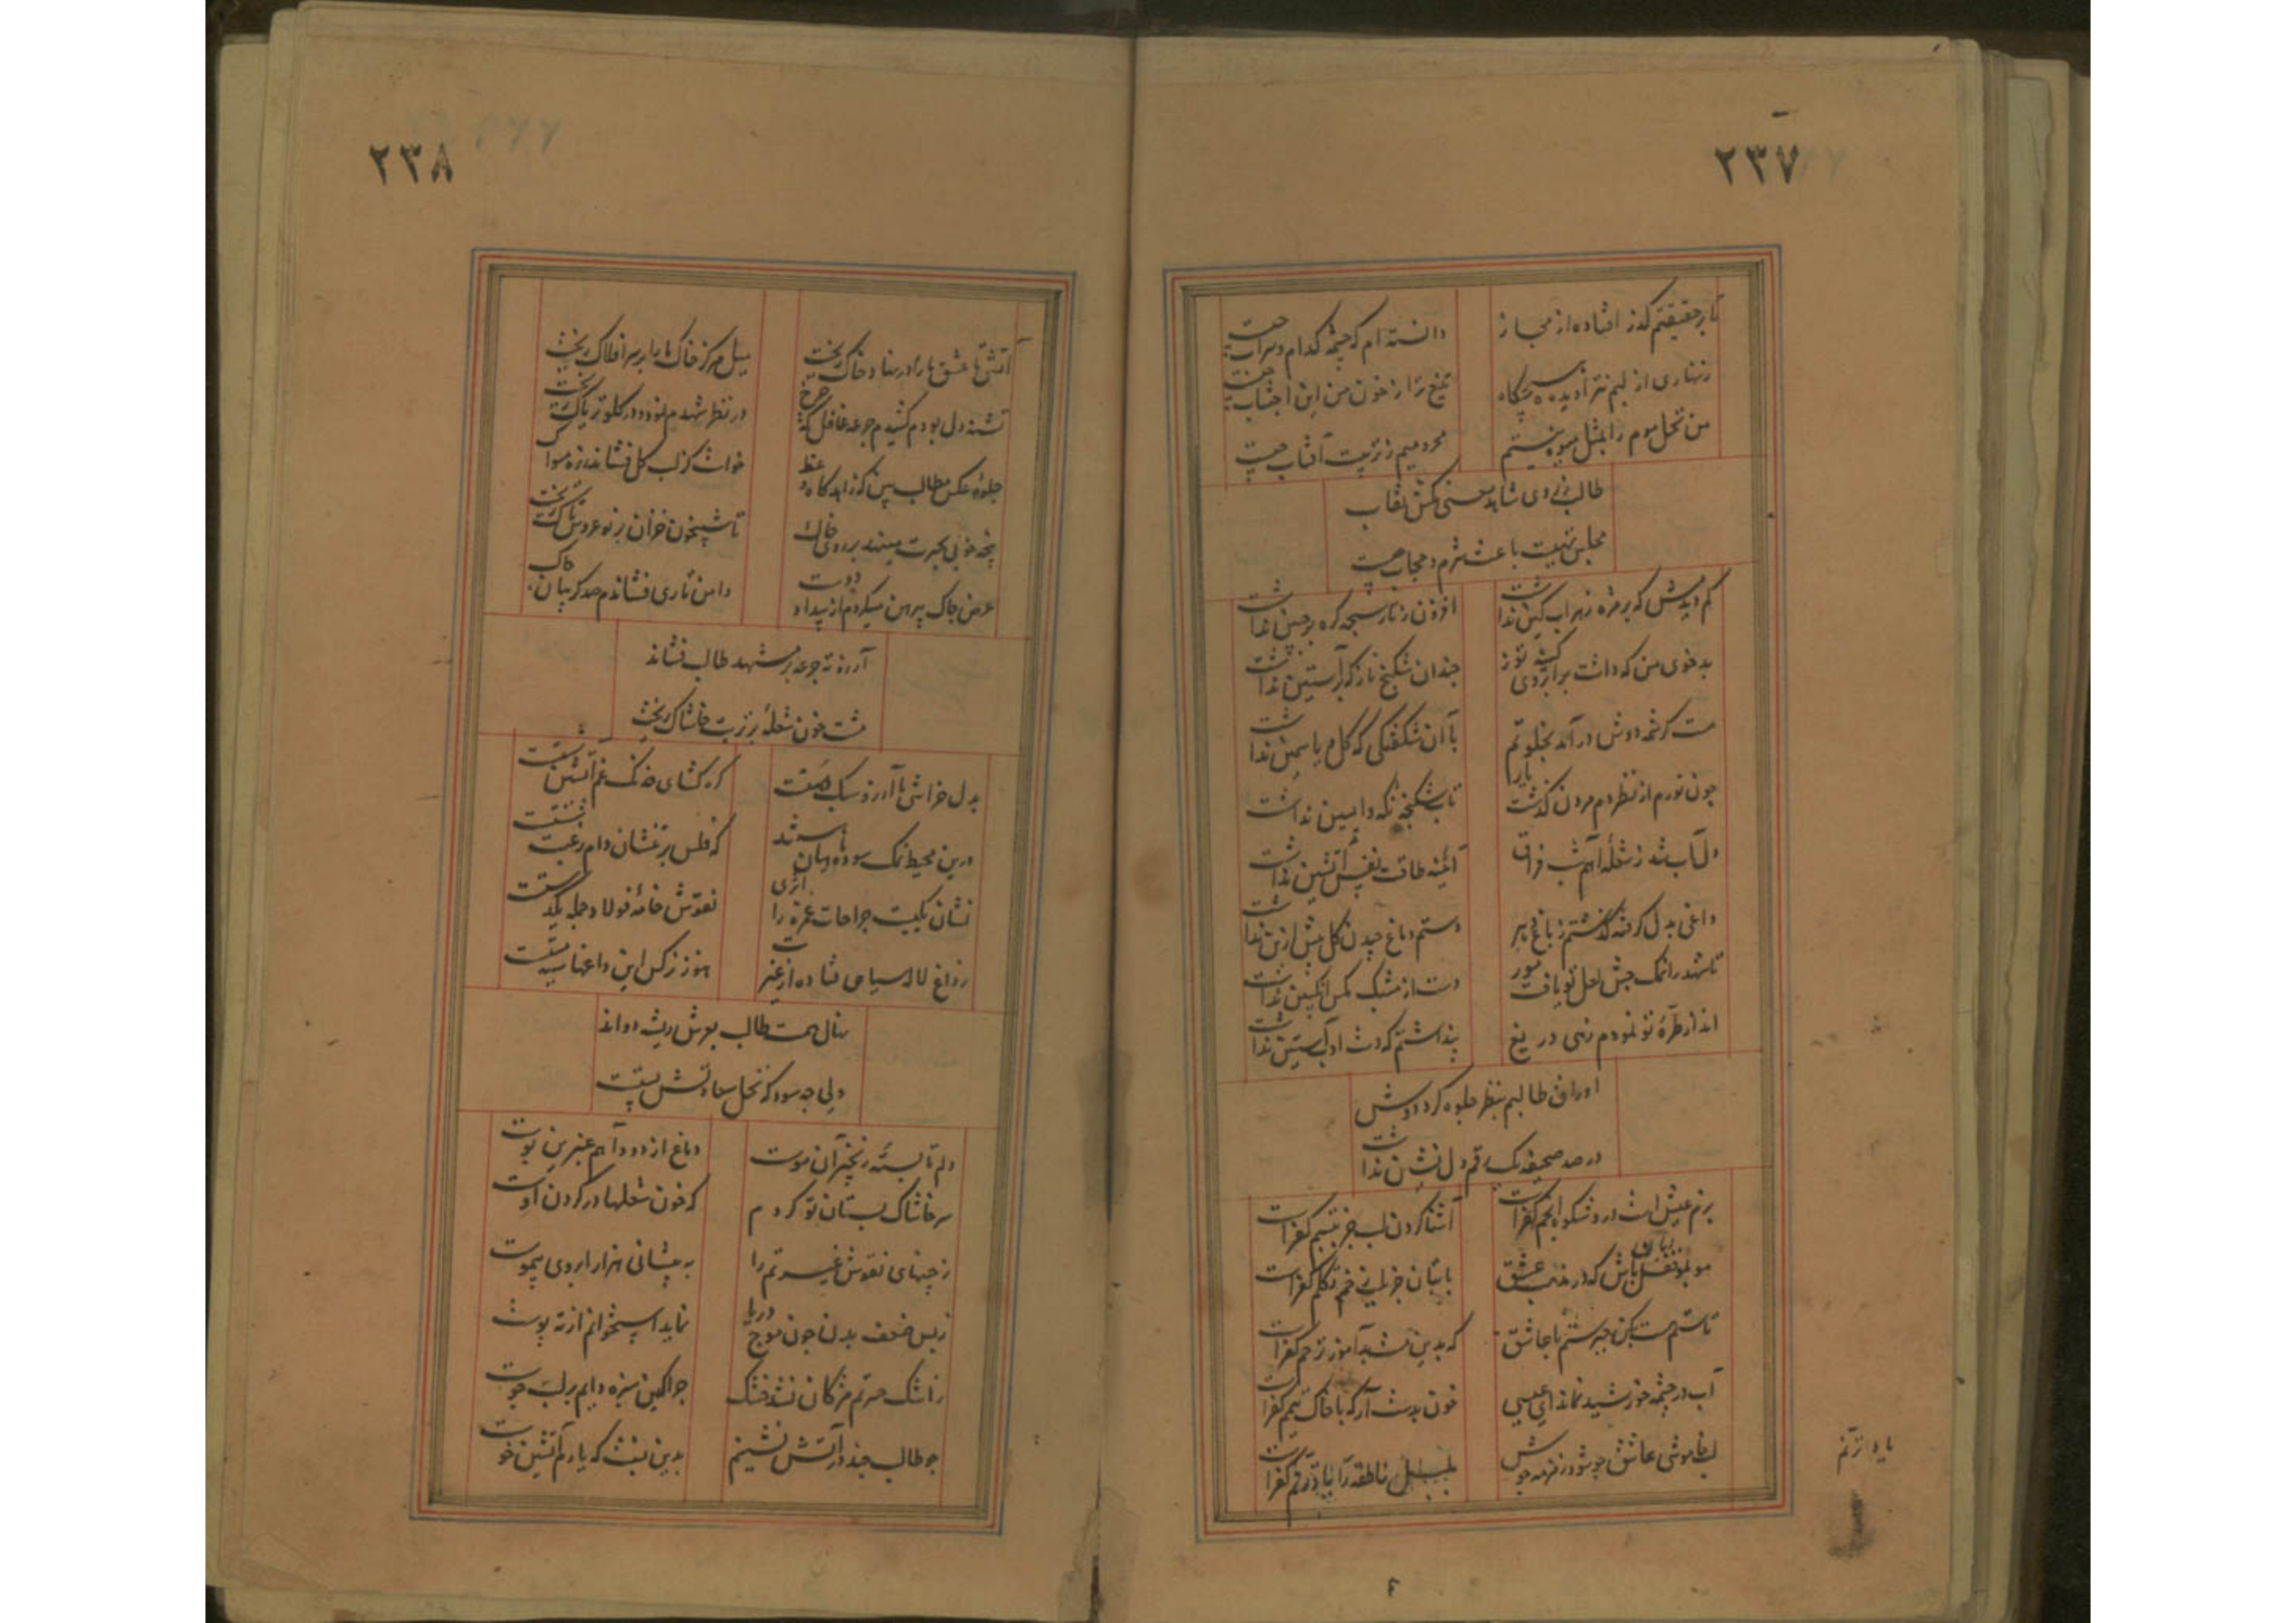 ۲۳۷
تا بر حقیقتم گذر افتاده از مجاز
دانسته ام که چشمه کدام و سراب چیست
زنهاری از لبم نتراویده هیچگاه
تیغ ترا ز خون من این اجتناب چیست
من نخل موم را بمثل میوه نیستم
محرومیم ز تربیت آفتاب چیست
طالب ز روی شاهد معنی بکش نقاب
مجلس تهیست باعث شرم و حجاب چیست
کم دیدمش که بر مژه زهراب کین نداشت
افزون ز تار سبحه گره بر جبین نداشت
بدخوی من که داشت بر ابروی کینه توز
چندان شکنج ناز که بر آستین نداشت
مست کرشمه دوش در آمد بخلوتم
با آن شکفتگی که گل و یاسمین نداشت
چون نورم از نظر دم مردن گذشت یار
تاب شکنجه نگه واپسین نداشت
دل آب شد ز شعله آهم شب فراق
آیینه طاقت نفس آتشین نداشت
داغی بدل گرفته گذشتم ز باغ دهر
دستم دماغ چیدن گل بیش ازین نداشت
تا شهد را نمک چش لعل تو یافت مور
دست از مشبک مگس انگبین نداشت
انداز طره تو نمودم زهی دریغ
پنداشتم که دست ادب آستین نداشت
اوراق طالبم بنظر جلوه کرد دوش
در صد صحیفه یک رقم دل نشین نداشت
بزم عیش است درو شکوه انجم کفر است
آشنا کردن لب جز بتبسم کفر است
مو بمو نقل زبان باش که در مذهب عشق
با بتان جز بزبان تکلم کفر است
تا ستم هست مکن چیر ستم با عاشق
که بدین مشبد آموز ترحم کفر است
آب در چشمه خورشید نماند ای عیسی
خون بدست آر که با خاک تیمم کفر است
لب خاموشی عاشق چو شود زمزمه جوش
بلبل ناطقه را یاد ترنم کفر است
یاد ترنم
۲۳۸
آتشی تا عشق ما را در نهاد خاک ریخت
میل مرکز خاک ما را بر سر افلاک ریخت
تشنه دل بودم کشیدم جرعه غافل که چرخ
در نظر شهدم نمود و در گلو تریاک ریخت
جلوه عکس مطالب بین که زاهد گاه وعظ
خواست کز لب گل فشاند زهره مسواک ریخت
پنجه خوبی بحیرت میسند بر روی خاک
تا شبیخون خزان بر نوعروس تاک ریخت
عرض چاک پیرهن میکردم از بیداد دوست
دامن تاری فشاندم صد گریبان چاک ریخت
آرزو ته جرعه بر مشهد طالب فشاند
مشت خون شعله بر تربت خاشاک ریخت
بدل خراشی ما آرزو سبک صفت است
گره گشای خدنگ غم آتشین شست است
درین محیط نمک سوده ماهیان باشند
که فلس بر تنشان دام رغبت شست است
نشان یکیست جراحات غمزه را اثری
نقوش خامه فولاد جمله یکدست است
ز داغ لاله سیاهی فتاده از غیرت
هنوز نرگس این داغها سیه مست است
نهال همت طالب بعرش ریشه دواند
ولی چه سود که نخل سعادتش پست است
دلم تا بسته زنجیر آن موست
دماغ از دود آهم عنبرین بوست
سر خاشاک بستان تو گردم
که خون شعلها در گردن اوست
ز چینهای نقوش غیرتم را
به پیشانی هزار ابروی بیموست
ز بس ضعف بدن چون موج دریا
نماید استخوانم از ته پوست
ز اشک حسرتم مژگان نشد خشک
چرا کین سبزه دایم بر لب جوست
چو طالب چند در آتش نشینم
بدین نسبت که یارم آتشین خوست